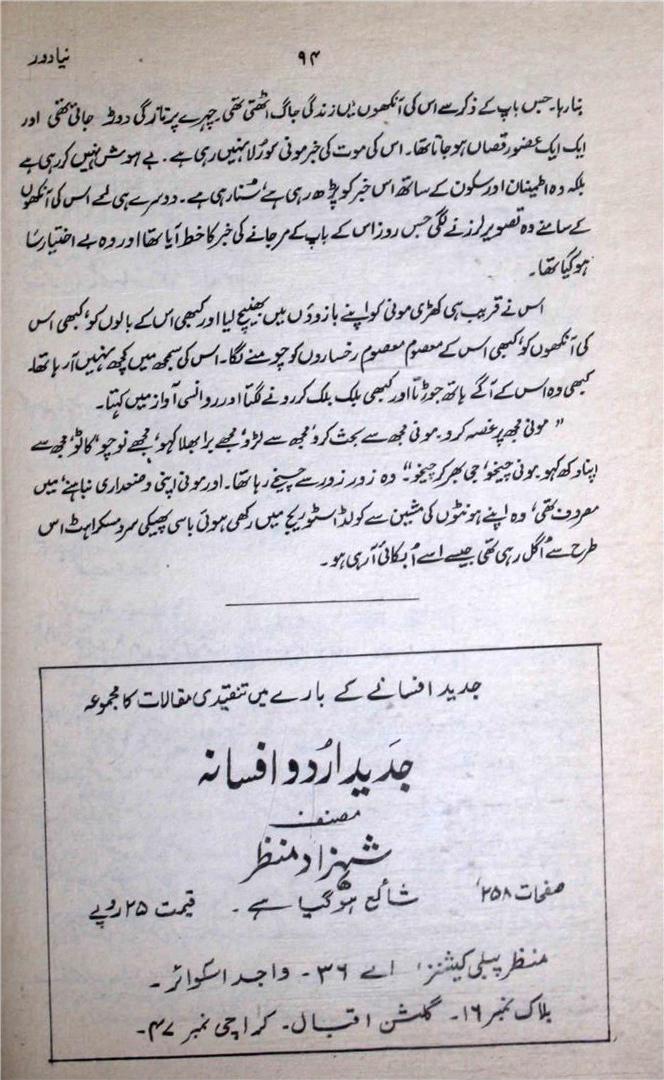 نیا دور
۹۴
بنا رہا۔ جس باپ کے ذکر سے اس کی آنکھوں میں زندگی جاگ اٹھتی تھی۔ چہرے پر تازگی دوڑ جاتی تھی اور
ایک ایک عضو رقصاں ہو جاتا تھا۔ اس کی موت کی خبر مونی کو رُلا نہیں رہی ہے۔ بے ہوش نہیں کر رہی ہے
بلکہ وہ اطمینان اور سکون کے ساتھ اس خبر کو پڑھ رہی ہے، سنا رہی ہے۔ دوسرے ہی لمحے اس کی آنکھوں
کے سامنے وہ تصویر لرزنے لگی جس روز اس کے باپ کے مر جانے کی خبر کا خط آیا تھا اور وہ بے اختیار سا
ہو گیا تھا۔
اس نے قریب ہی کھڑی مونی کو اپنے بازوؤں میں بھینچ لیا اور کبھی اس کے بالوں کو، کبھی اس
کی آنکھوں کو، کبھی اس کے معصوم معصوم رخساروں کو چومنے لگا۔ اس کی سمجھ میں کچھ نہیں آ رہا تھا۔
کبھی وہ اس کے آگے ہاتھ جوڑتا اور کبھی بلک بلک کر رونے لگتا اور روانسی آواز میں کہتا۔
"مونی مجھ پر غصہ کرو۔ مونی مجھ سے بحث کرو، مجھ سے لڑو، مجھے برا بھلا کہو، مجھے نوچو، کاٹو، مجھ سے
اپنا دکھ کہو۔ مونی چیخو، جی بھر کر چیخو" وہ زور زور سے چیخے رہا تھا۔ اور مونی اپنی وضعداری نباہنے، میں
مصروف تھی، وہ اپنے ہونٹوں کی مشین سے کولڈ اسٹوریج میں رکھی ہوئی باسی پھیکی سرد مسکراہٹ اس
طرح سے اُگل رہی تھی جیسے اسے اُبکائی آ رہی ہو۔
جدید افسانے کے بارے میں تنقیدی مقالات کا مجموعہ
جَدید اُردو افسانہ
مصنف
شہزاد منظر
صفحات ۲۵۸، شائع ہو گیا ہے۔ قیمت ۲۵ روپے
منظر پبلی کیشنز، اے ۳۶۔ واجد اسکوائر۔
بلاک نمبر ۱۶۔ گلشن اقبال۔ کراچی نمبر ۴۷۔